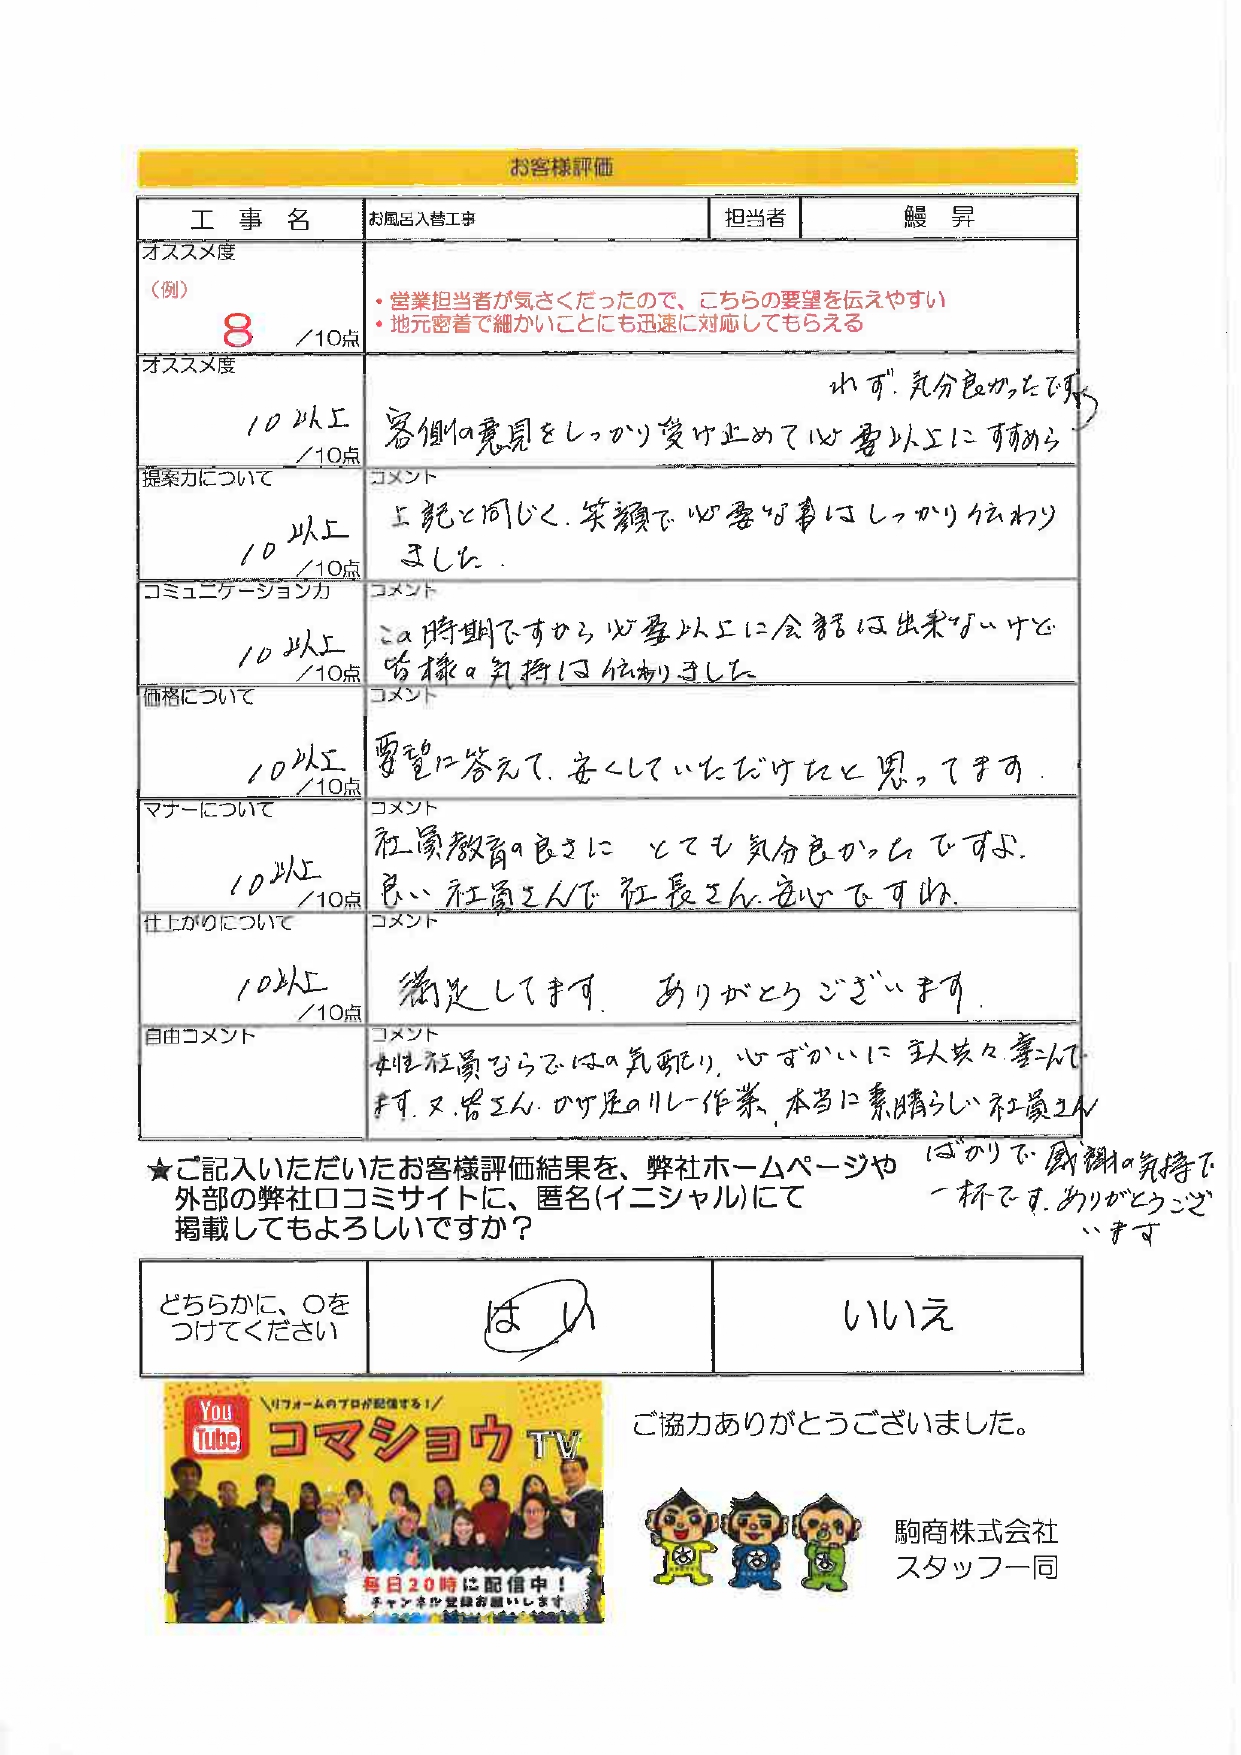 お客様評価
工事名 お風呂入替工事 担当者 鰻昇
オススメ度
（例）
8 /10点
・営業担当者が気さくだったので、こちらの要望を伝えやすい
・地元密着で細かいことにも迅速に対応してもらえる
オススメ度
10以上
/10点
客側の意見をしっかり受け止めて必要以上にすすめら
れず.気分良かったです
提案力について
10以上
/10点
コメント
上記と同じく.笑顔で必要な事はしっかり伝わり
ました.
コミュニケーション力
10以上
/10点
コメント
この時期ですから必要以上に会話は出来ないけど
皆様の気持は伝わりました
価格について
10以上
/10点
コメント
要望に答えて.安くしていただけたと思ってます.
マナーについて
10以上
/10点
コメント
社員教育の良さに とても気分良かったですよ.
良い社員さんで社長さん.安心ですね.
仕上がりについて
10以上
/10点
コメント
満足してます. ありがとうございます.
自由コメント
コメント
女性社員ならではの気配り、心ずかいに主人共々.喜こんで
ます.又.皆さん.かけ足のリレー作業、本当に素晴らしい社員さん
ばかりで感謝の気持で
一杯です.ありがとうござ
います
★ご記入いただいたお客様評価結果を、弊社ホームページや
外部の弊社口コミサイトに、匿名(イニシャル)にて
掲載してもよろしいですか？
どちらかに、〇を
つけてください
はい
いいえ
You
Tube
＼リフォームのプロが配信する！／
コマショウTV
毎日20時に配信中！
チャンネル登録お願いします
ご協力ありがとうございました。
駒商株式会社
スタッフ一同